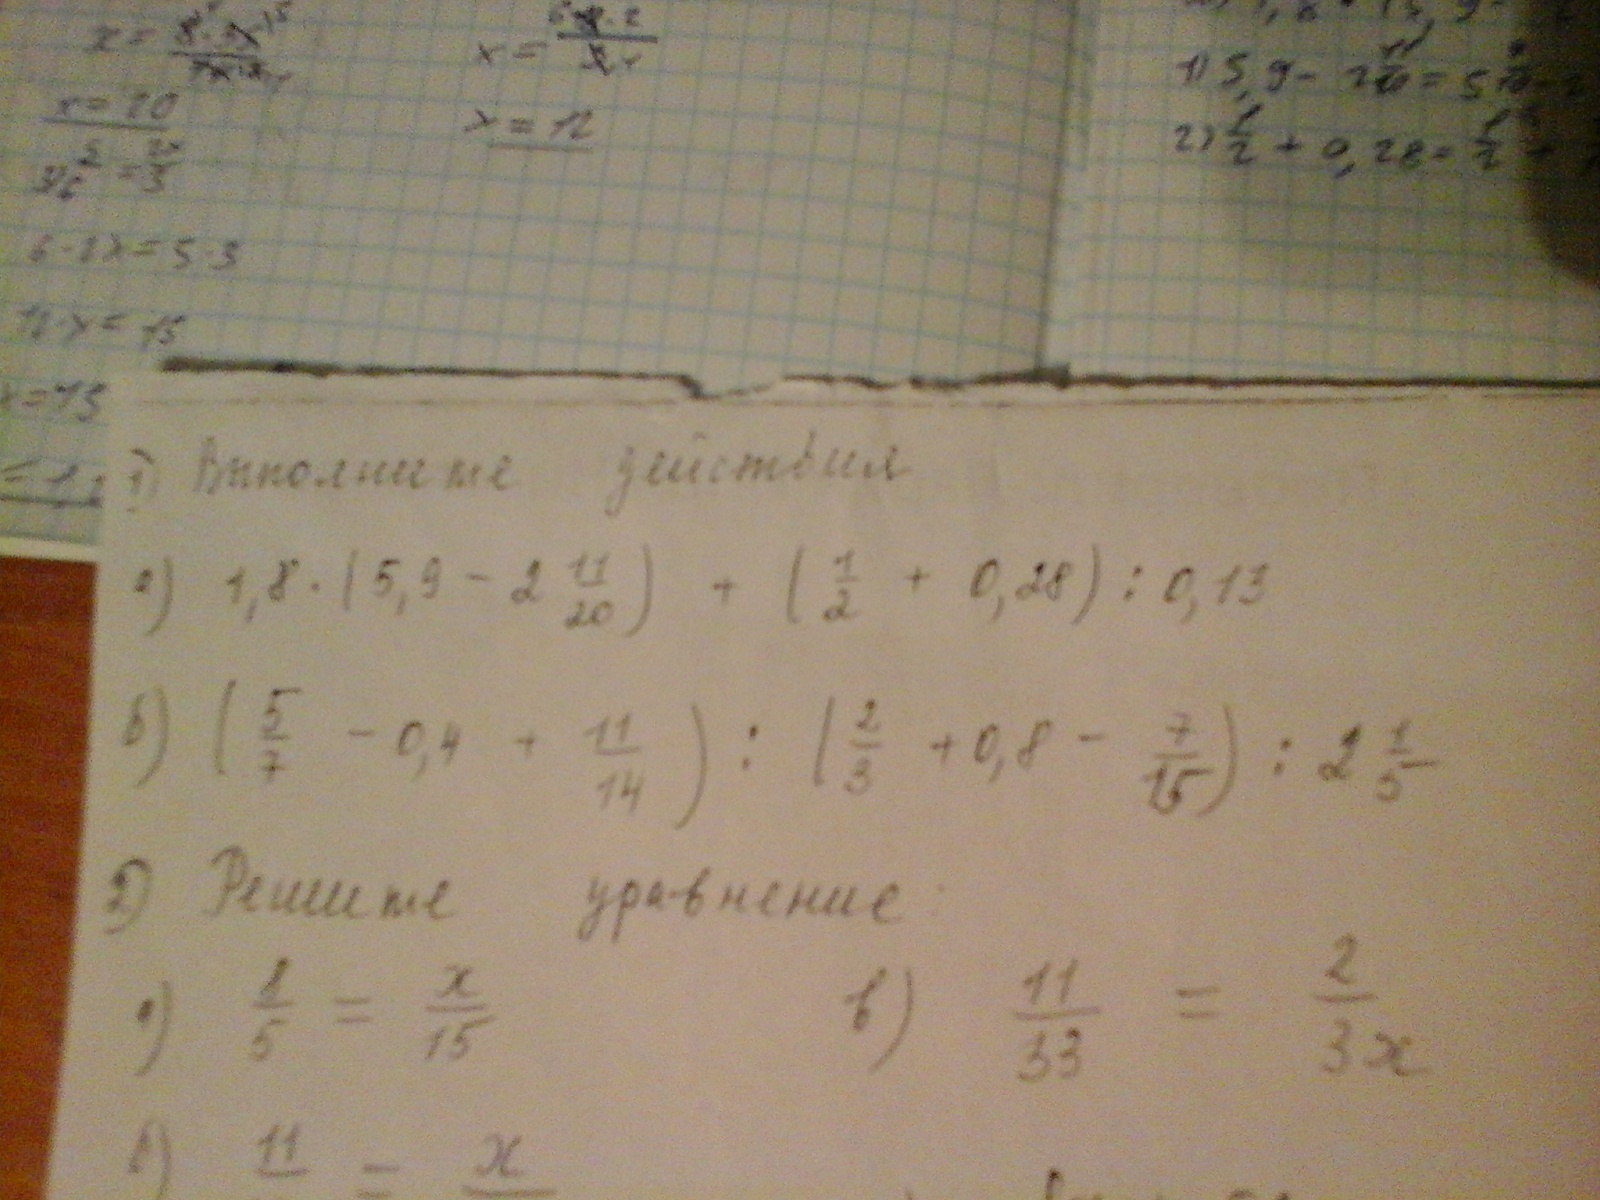 x =
x = 20
6 · 2x = 5 · 3
12 · x = 15
x = 15
= 1,
x =
x = 12
1) 5,9 - 2 11/20 = 5
2) 1/2 + 0,28 = 1/2 +
1) Выполните действия
а) 1,8 · (5,9 - 2 11/20) + (1/2 + 0,28) : 0,13
б) (5/7 - 0,4 + 11/14) : (2/3 + 0,8 - 7/15) : 2 1/5
2) Решите уравнение:
а) 8/5 = x/15 в) 11/33 = 2/3x
б) 11 = x